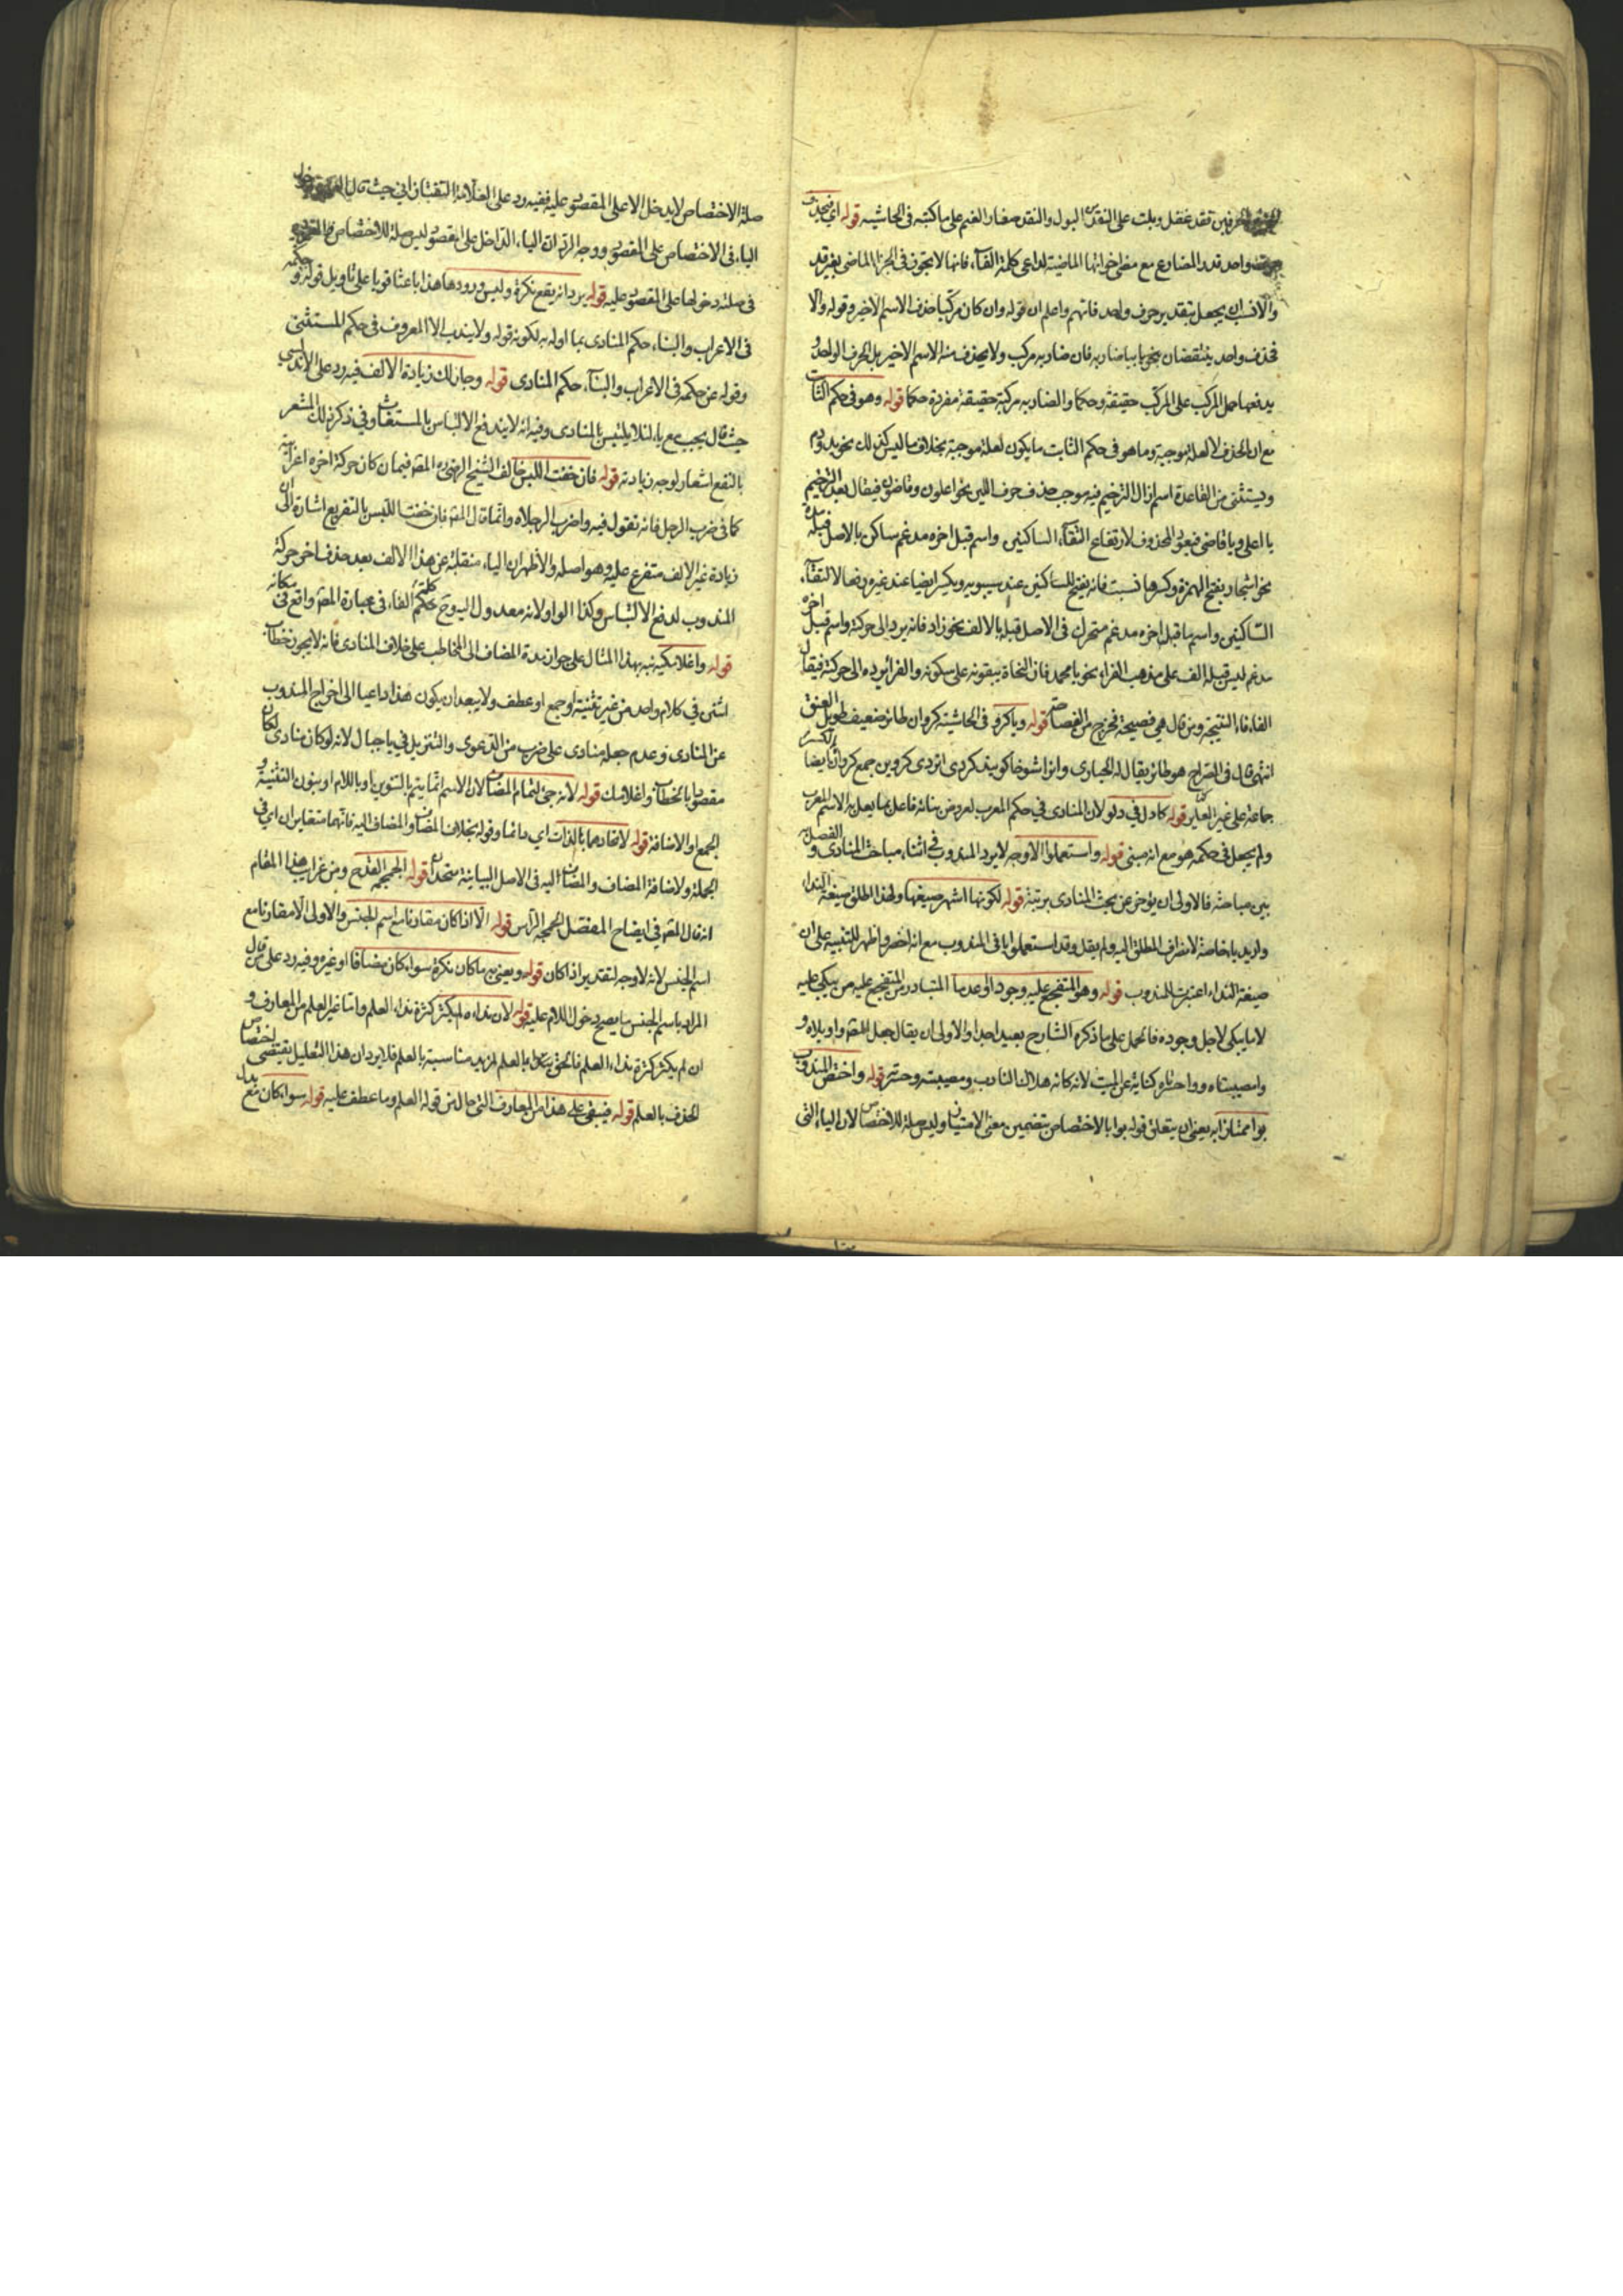 فقد غفل وبلت على النقد البول والنقد صغار الغنم على ما كتبه في الحاشية قوله اي فيحذف
واحد قدر المضارع مع مضي اخواتها الماضية لداعي كلمة الفاء فانها لا تجوز في الجزاء الماضي بغير قد
والانسب ان يجعل بتقدير حرف واحد فافهم واعلم ان قوله وان كان مركبا حذف الاسم الاخير وقوله والا
فحذف واحد ينتقضان بنحو يا بيا ضاربه فان ضاربه مركب ولا يحذف منه الاسم الاخير بل الحرف الواحد و
يدفعها حمل المركب على المركب حقيقة وحكما والضاربه مركبة حقيقة مفردة حكما قوله وهو في حكم الثابت
مع ان الحذف لا لعلة موجبة وما هو في حكم الثابت ما يكون لعلة موجبة بخلاف ما ليس كذلك نحو يد ودم
ويستثنى من القاعدة اسم ازال الترخيم فيه موجب حذف حرف اللين نحو اعلون وقاضون فيقال بعد الترخيم
يا اعلى ويا قاضي فيعود المحذوف لارتفاع التقاء الساكنين واسم قبل اخره مدغم ساكن بالاصل قبله مدة
نحو اسحار بفتح الهمزة وكسرها نبت فانه يفتح للساكنين عند سيبويه ويكسر ايضا عند غيره دفعا لالتقاء
الساكنين واسم ما قبل اخره مدغم متحرك في الاصل قبله الالف نحو راد فانه يرد الى حركته واسم قبل اخره
مدغم ليس قبله الف على مذهب الفراء نحو يا محمد فان النحاة يبقونه على سكونه والفراء يرده الى حركته فيقال
الفاء فاء النتيجة ومن قال هي فصيحة فخرج من الفصاحة قوله ويا كرو في الحاشية كروان طائر ضعيف طويل العنق
انتهى قال في الصراح هو طائر يقال له الحبارى وانرا شوخات كويند كردى انردى كروين جمع كروان ايضا بالكسر
جماعة على غير القياس قوله كادل في دلو لان المنادى في حكم المعرب لعروض بنائه فاعل بما يعل به الاسم المعرب
ولم يجعل في حكمه هو مع انه مبني قوله واستعملوا الاوجه لايراد المندوب في اثناء مباحث المنادى والفصل
بين مباحثه فالاولى ان يؤخر عن بحث المنادى برمته قوله لكونها اشهر صيغها ولهذا اطلق صيغة النداء
واريد يا خاصة لانصراف المطلق اليه ولم يقل وقد استعملوا يا في المندوب مع انه اخصر واظهر للتنبيه على ان
صيغة النداء اعتبرت للمندوب قوله وهو المتفجع عليه وجودا او عدما المتبادر من المتفجع عليه من يبكي عليه
لا ما يبكي لاجل وجوده فالحمل على ما ذكره الشارح بعيد جدا والاولى ان يقال جعل المصـ واويلاه و
وامصيبتاه وواحسرتاه كناية عن الميت لانه كانه هلاك النادب ومصيبته وحسرته قوله واختص المندوب
بوا ممتازا به يعني ان يتعلق قوله بوا بالاختصاص بتضمين معنى الامتياز وليس صلة للاختصاص لان الباء التي
صلة الاختصاص لا يدخل الا على المقصور عليه ففيه رد على العلامة التفتازاني حيث قال
الباء في الاختصاص على المقصور ووجه الرد ان الباء الداخل على المقصور ليس صلة للاختصاص
في صلته دخولها على المقصور عليه قوله يرد انه يقع نكرة وليس ورودها هذا باعثا قويا على تاويل قوله وحكمه
في الاعراب والبناء حكم المنادى بما اوله به لكونه قوله ولا يندب الا المعروف في حكم المستثنى
وقوله عن حكمه في الاعراب والبناء حكم المنادى قوله وجاز لك زيادة الالف فيه رد على الاندلسي
حيث قال يجب مع يا لئلا يلتبس بالمنادى وفيه انه لا يندفع الالباس بالمستغاث وفي ذكر ذلك المشعر
بالنفع اشعار لوجه زيادته قوله فان خفت اللبس خالف الشيخ الرضي المصـ فيما ان كان حركة اخره اعرابية
كما في ضرب الرجل فانه تقول فيه واضرب الرجلاه وانما قال المصـ فان خفت اللبس بالتفريع اشارة الى ان
زيادة غير الالف متفرع عليه وهو اصله والاظهر ان الياء منقلبة عن هذا الالف بعد حذف اخر حركة
المندوب لدفع الالتباس وكذا الواو لانه معدول اليه وح كلمة الفاء في عبارة المصـ واقع في مكانه
قوله واغلامكيه نبه بهذا المثال على جواز ندبة المضاف الى المخاطب على خلاف المنادى فانه لا يجوز خطاب
اثنين في كلام واحد من غير تثنية او جمع او عطف ولا يبعد ان يكون هذا داعيا الى اخراج المندوب
عن المنادى وعدم جعله منادى على ضرب من الدعوى والتنزيل في يا جبال لانه لو كان منادى لكان
مقصودا بالخطاب واغلامك قوله لانه جيء لتمام المضاف لان الاسم انما يتم بالتنوين او باللام او بنون التثنية و
الجمع او الاضافة قوله لاتحادهما بالذات اي دائما وقوله بخلاف المضاف والمضاف اليه فانهما متغايران اي في
الجملة ولاضافة المضاف والمضاف اليه في الاصل البيانية متحدان قوله الجمجمة القدح ومن غرايب هذا المقام
انه قال المصـ في ايضاح المفصل الجمجمة الرأس قوله الا اذا كان مقارنا مع اسم الجنس والاولى الا مقارنا مع
اسم الجنس لانه لا وجه لتقدير اذا كان قوله ويعني به ما كان نكرة سواء كان مضافا او غيره وفيه رد على من قال
المراد باسم الجنس ما يصح دخول اللام عليه قوله لان نداءه لم يكثر كثرة نداء العلم واما غير العلم من المعارف و
ان لم يكثر كثرة نداء العلم فالحق بها بالعلم لمزيد مناسبة بالعلم فلا يرد ان هذا التعليل يقتضي اختصاص
الحذف بالعلم قوله فيبقى على هذا من المعارف التي حال من قوله العلم وما عطف عليه قوله سواء كان مع بدل